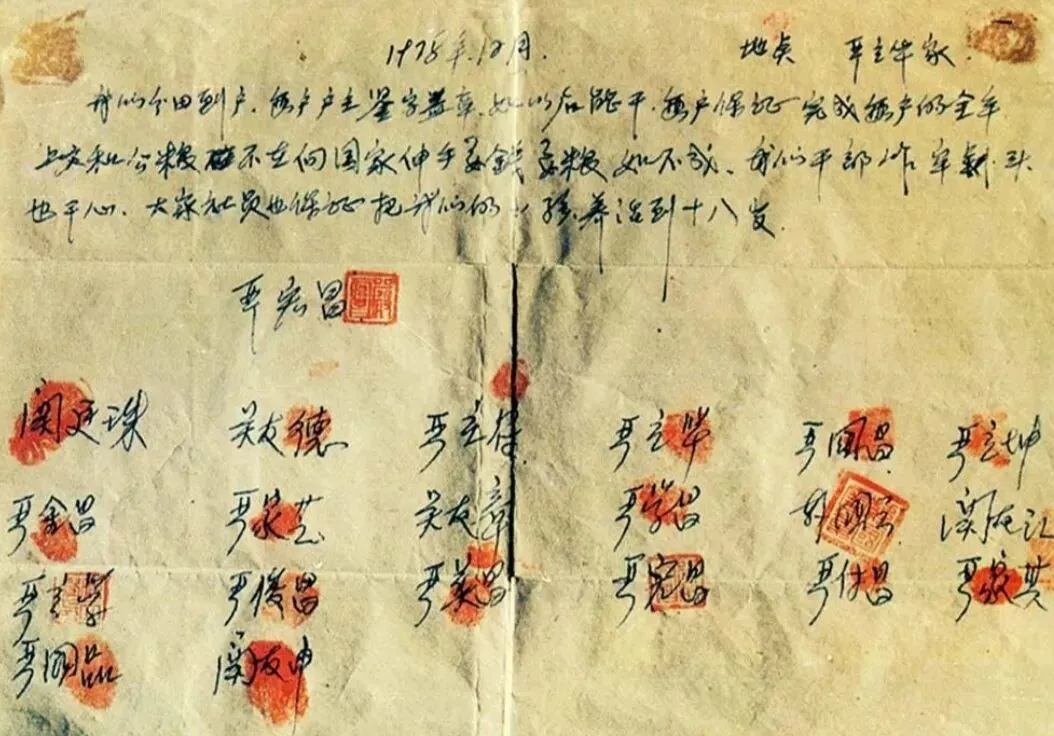 1978年.12月. 地点 严立华家.
我们分田到户.每户户主鉴字盖章.如以后能干.每户保证完成每户的全年
上交和公粮不在向国家伸手要钱要粮如不成.我们干部作牢杀头
也干心.大家社员也保证把我们的小孩养活到十八岁.
严宏昌
关廷珠 关友德 严立符 严立华 严国昌 严立坤
严金昌 严家芝 关友章 严学昌 韩国云 关友江
严立学 严俊昌 严美昌 严宏昌 严付昌 严家其
严国品 关友申